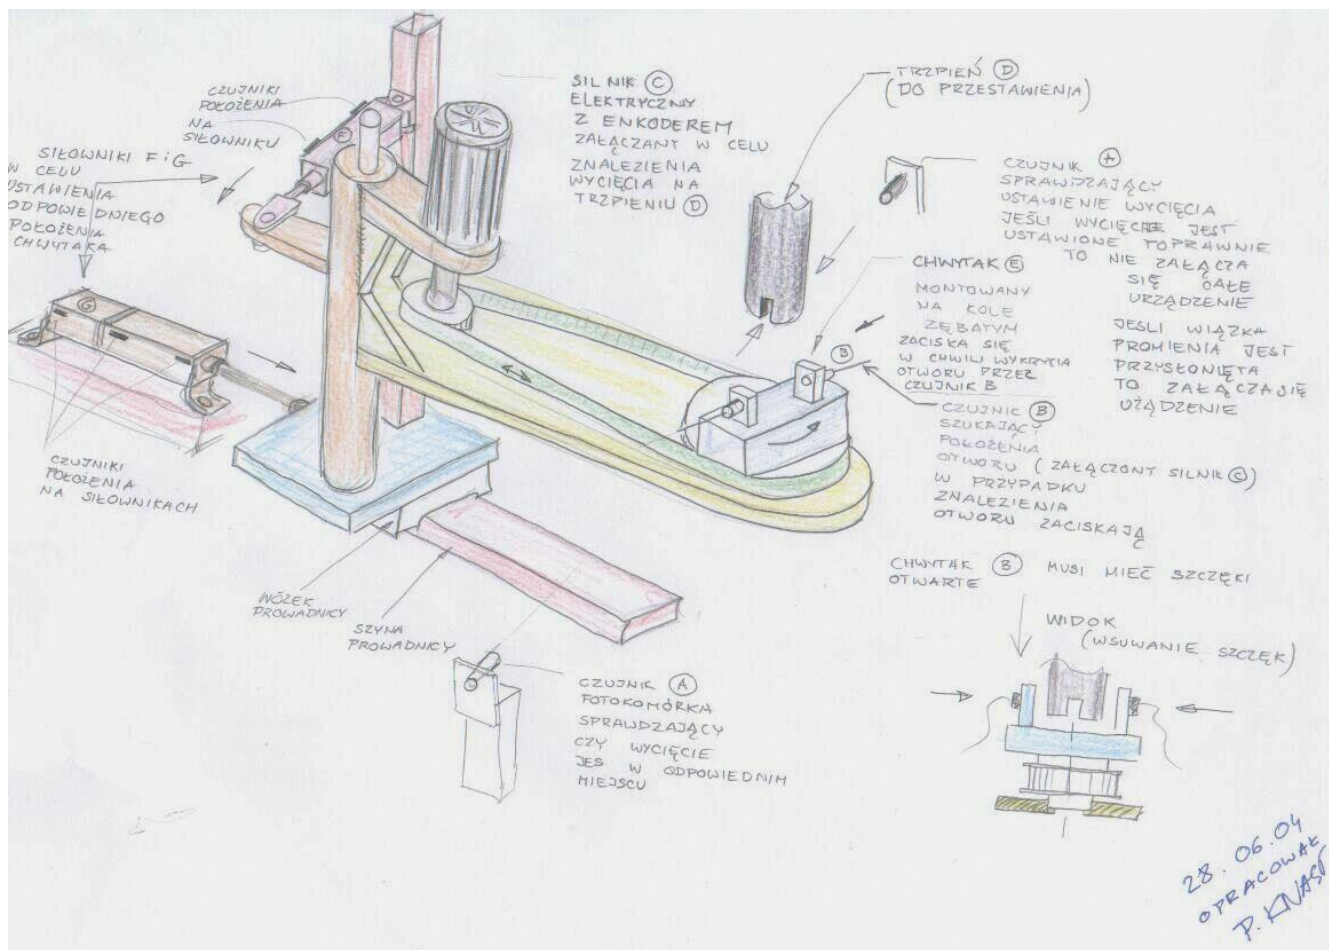 CZUJNIKI
POŁOŻENIA
NA
SIŁOWNIKU
F
SIŁOWNIKI F i G
W CELU
USTAWIENIA
ODPOWIEDNIEGO
POŁOŻENIA
CHWYTAKA
G
CZUJNIKI
POŁOŻENIA
NA SIŁOWNIKACH
SILNIK C
ELEKTRYCZNY
Z ENKODEREM
ZAŁĄCZANY W CELU
ZNALEZIENIA
WYCIĘCIA NA
TRZPIENIU D
TRZPIEŃ D
(DO PRZESTAWIENIA)
CZUJNIK A
SPRAWDZAJĄCY
USTAWIENIE WYCIĘCIA
JEŚLI WYCIĘCIE JEST
USTAWIONE POPRAWNIE
TO NIE ZAŁĄCZA
SIĘ CAŁE
URZĄDZENIE
JEŚLI WIĄZKA
PROMIENIA JEST
PRZYSŁONIĘTA
TO ZAŁĄCZA SIĘ
UŻĄDZENIE
CHWYTAK E
MONTOWANY
NA KOLE
ZĘBATYM
ZACISKA SIĘ
W CHWILI WYKRYCIA
OTWORU PRZEZ
CZUJNIK B
B
CZUJNIK B
SZUKAJĄCY
POŁOŻENIA
OTWORU (ZAŁĄCZONY SILNIK C)
W PRZYPADKU
ZNALEZIENIA
OTWORU ZACISKAJĄ
CHWYTAK B MUSI MIEĆ SZCZĘKI
OTWARTE
WIDOK
(WSUWANIE SZCZĘK)
WÓZEK
PROWADNICY
SZYNA
PROWADNICY
CZUJNIK A
FOTOKOMÓRKA
SPRAWDZAJĄCY
CZY WYCIĘCIE
JES W ODPOWIEDNIM
MIEJSCU
28.06.04
OPRACOWAŁ
P. KNAST